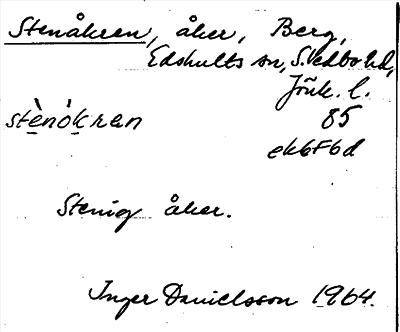 Stenåkren, åker, Berg,
Edshults sn, S. Vedbo hd,
Jönk. l.
stè̱nó̱kran 85
ek6F6d
Stenig åker.
Inger Danielsson 1964.